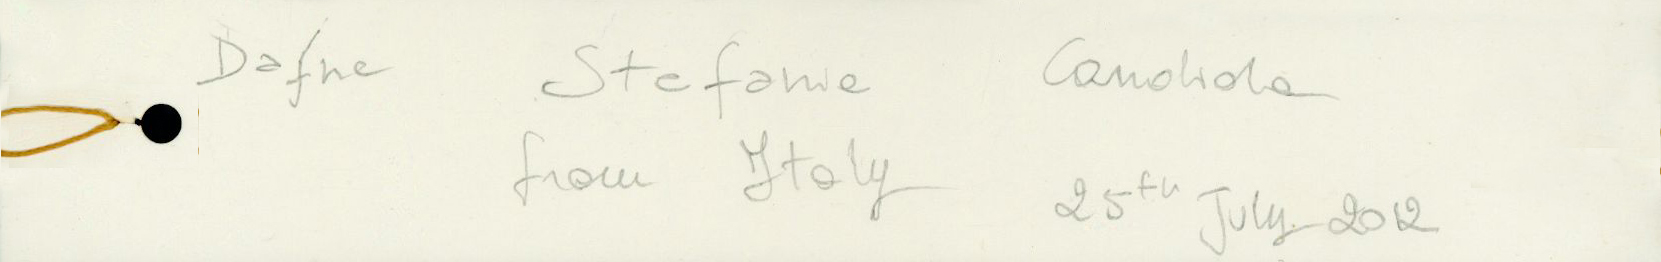 Dafne Stefanie Candida
from Italy
25th July 2012